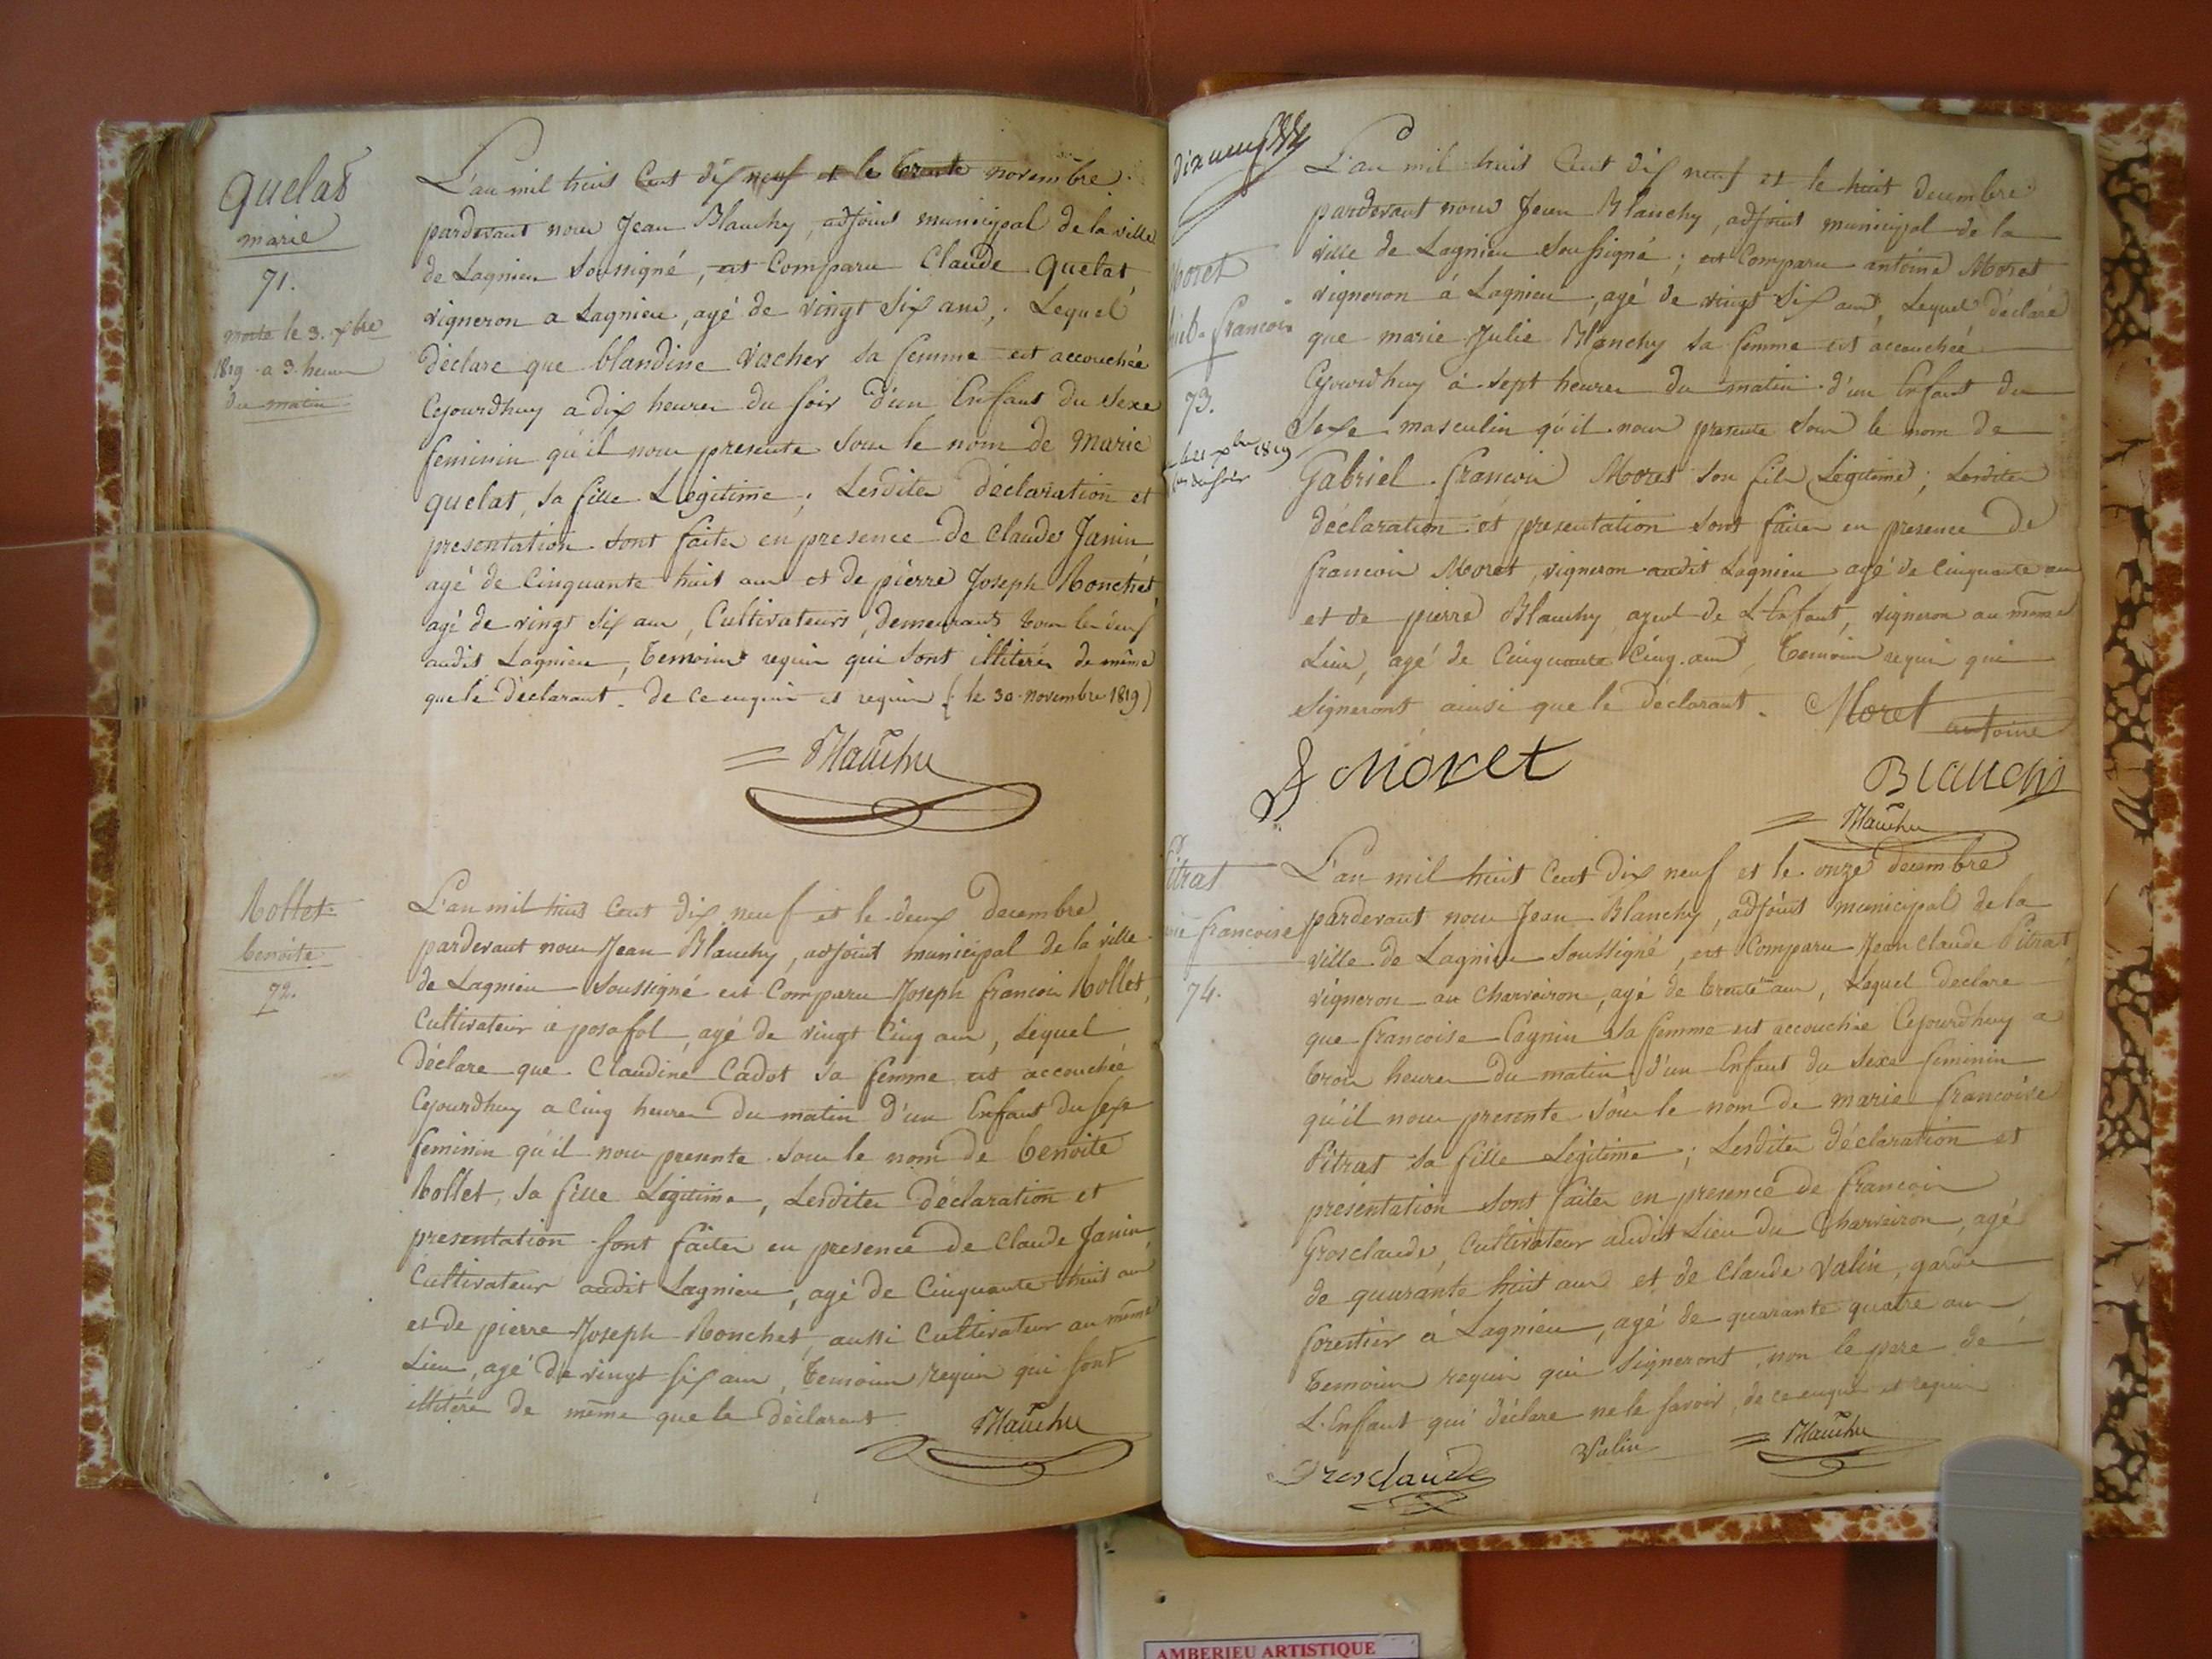 quelat
marie
71.
morte le 3. xbre
1819 a 3 heures
du matin
L'an mil huit Cent dix neuf et le trente novembre
pardevant nous Jean Blanchy, adjoint municipal de la ville
de Lagnieu Soussigné, est Comparu Claude quelat,
vigneron a Lagnieu, agé de vingt Six ans, Lequel
déclare que blandine Vacher sa femme est accouchée
Cejourdhuy a dix heures du soir d'un Enfant du Sexe
feminin qu'il nous presente sous le nom de Marie
quelat, sa fille Légitime; Lesdites déclaration et
presentation sont faites en presence de Claude Janin
agé de Cinquante huit ans et de pierre Joseph Ronchet,
agé de vingt Six ans, Cultivateurs, demeurants tous les deux
audit Lagnieu, temoins requis qui sont illiterés de même
que le déclarant. de ce enquis et requis (le 30 novembre 1819)
Blanchy
Rollet
benoite
72.
L'an mil huit Cent dix neuf et le deux decembre
pardevant nous Jean Blanchy, adjoint municipal de la ville
de Lagnieu Soussigné est Comparu Joseph francois Rollet,
Cultivateur a posafol, agé de vingt Cinq ans, Lequel
déclare que Claudine Cadot sa femme est accouchée
Cejourdhuy a Cinq heures du matin d'un Enfant du Sexe
feminin qu'il nous presente sous le nom de benoite
Rollet, sa fille Légitime, Lesdites déclaration et
presentation sont faites en presence de Claude Janin,
Cultivateur audit Lagnieu, agé de Cinquante huit ans
et de pierre Joseph Ronchet, aussi Cultivateur au même
Lieu, agé de vingt Six ans, temoins requis qui sont
illiterés de même que le déclarant.
Blanchy
dix neuf
Moret
francois
73.
xbre 1819
du soir
L'an mil huit Cent dix neuf et le huit decembre
pardevant nous Jean Blanchy, adjoint municipal de la
ville de Lagnieu Soussigné; est Comparu antoine Moret
vigneron à Lagnieu, agé de vingt Six ans, Lequel déclare
que marie Julie Blanchy sa femme est accouchée
Cejourdhuy à Sept heures du matin d'un Enfant du
Sexe masculin qu'il nous presente sous le nom de
Gabriel francois Moret son fils Légitime; Lesdites
déclaration et presentation sont faites en presence de
francois Moret, vigneron audit Lagnieu agé de Cinquante ans
et de pierre Blanchy ayeul de L'Enfant, vigneron au même
Lieu, agé de Cinquante Cinq ans, temoins requis qui
Signeront ainsi que le déclarant. Moret antoine
F Moret
Blanchy
Blanchy
Pitrat
francoise
74.
L'an mil huit Cent dix neuf et le onze decembre
pardevant nous Jean Blanchy, adjoint municipal de la
ville de Lagnieu Soussigné, est Comparu Jean Claude Pitrat
vigneron au Charveiron, agé de trente ans, Lequel declare
que francoise Cagnin sa femme est accouchée Cejourdhuy a
trois heures du matin d'un Enfant du Sexe feminin
qu'il nous presente sous le nom de marie francoise
Pitrat sa fille Légitime; Lesdites déclaration et
presentation sont faites en presence de francois
Grosclaude, Cultivateur audit Lieu du Charveiron, agé
de quarante huit ans et de Claude Valin, garde
forestier à Lagnieu, agé de quarante quatre ans
temoins requis qui Signeront, non le pere de
L'Enfant qui déclare ne le savoir, de ce enquis et requis
Grosclaude
Valin
Blanchy
AMBERIEU ARTISTIQUE